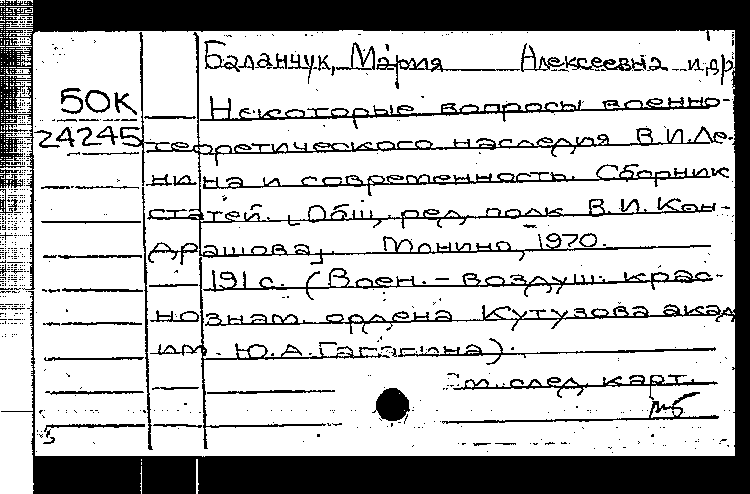 Баланчук, Мария Алексеевна и др
50К
Некоторые вопросы военно-
24245
теоретического наследия В.И.Ле-
нина и современность. Сборник
статей. [Общ. ред. полк В.И. Кон-
драшова]. Монино, 1970.
191 с. (Воен.-воздуш. крас-
нознам. ордена Кутузова акад
им. Ю.А.Гагарина).
См. след. карт.